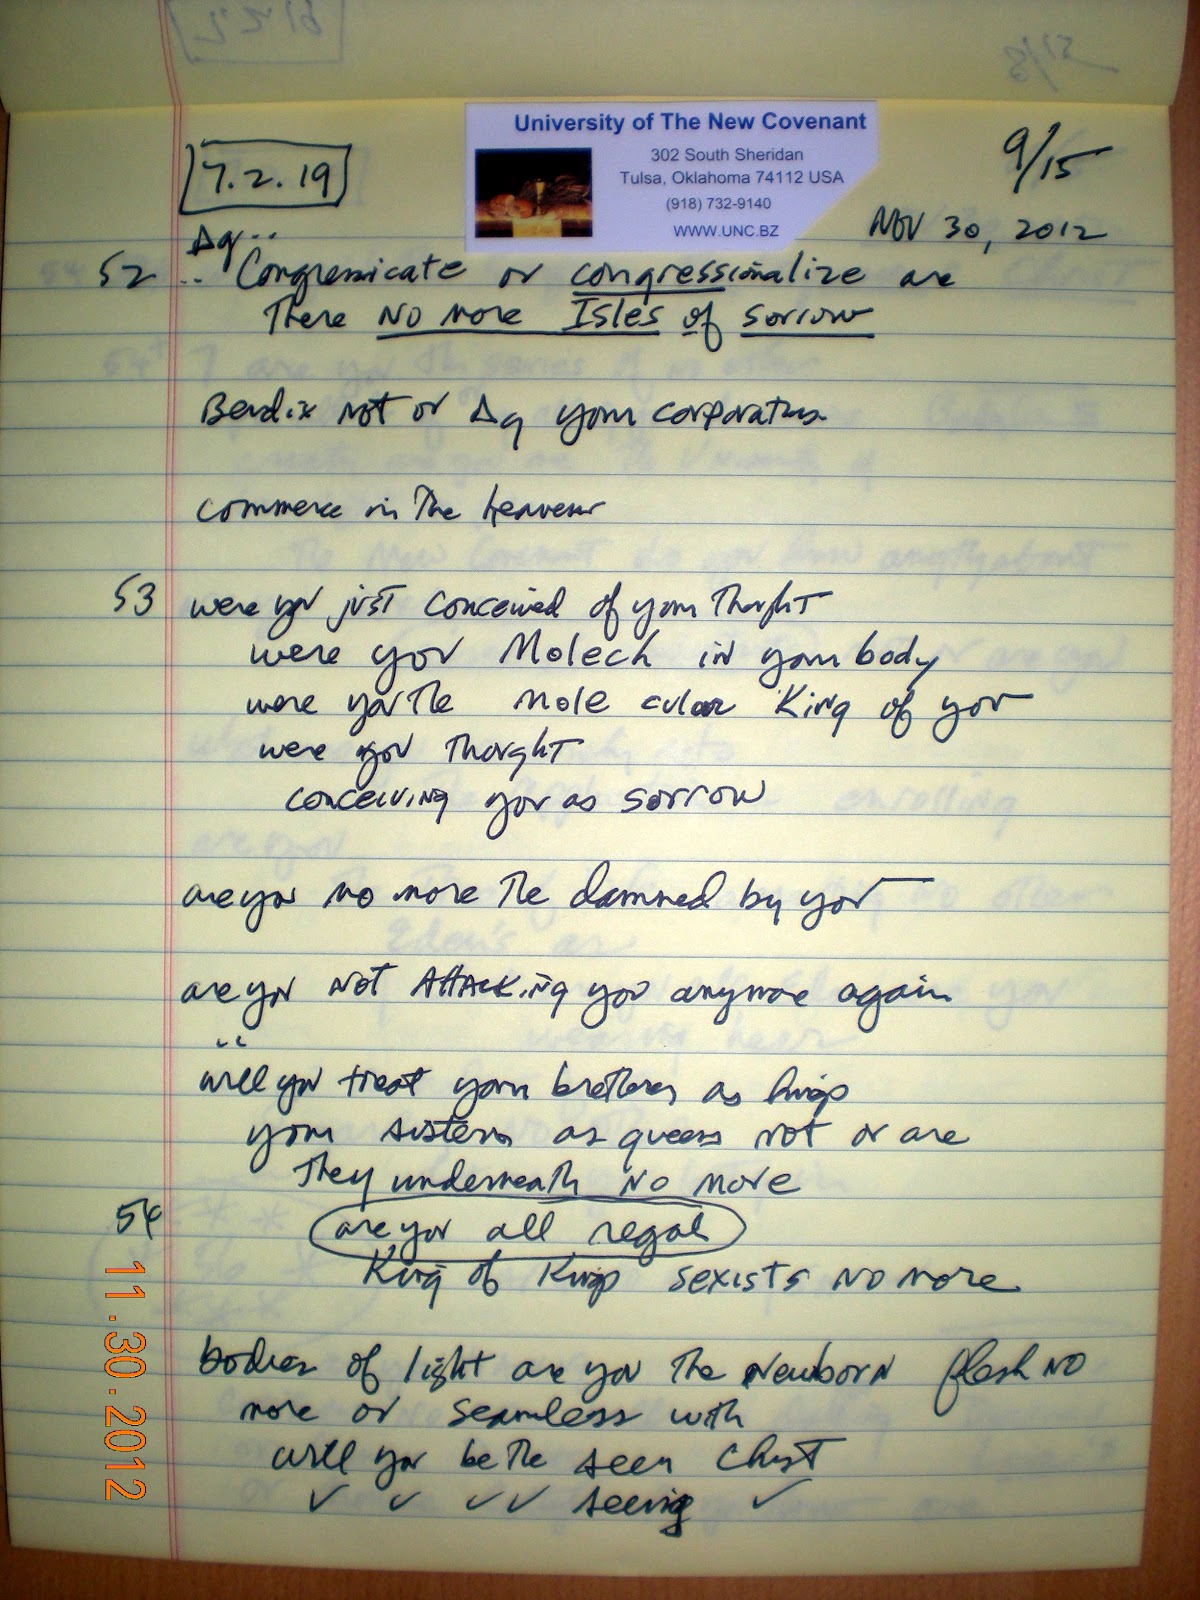 7.2.19
University of The New Covenant
302 South Sheridan
Tulsa, Oklahoma 74112 USA
(918) 732-9140
WWW.UNC.BZ
9/15
NOV 30, 2012
Δq..
52 .. Congressicate or congressionalize are
There NO more Isles of sorrow
Bendix not or Δq your corporations
commerce in The heavens
53 were you just conceived of your Thought
were you Molech in your body
were you The mole cular King of you
were you Thought
conceiving you as sorrow
are you no more The damned by you
are you NOT Attacking you anymore again
..
will you treat your brethren as kings
your sisters as queens not or are
They underneath NO more
54 are you all regal
King of Kings sexists NO more
bodies of light are you The Newborn flesh NO
more or seamless with
will you be The seen Christ
✓ ✓ ✓ ✓ seeing ✓
11.30.2012